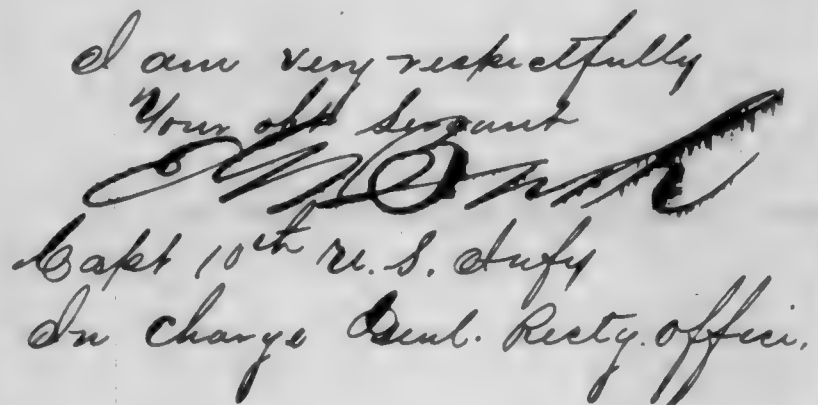 I am very respectfully
Your obt Servant
Capt 10th U.S. Infy
In charge Genl. Rectg. office.